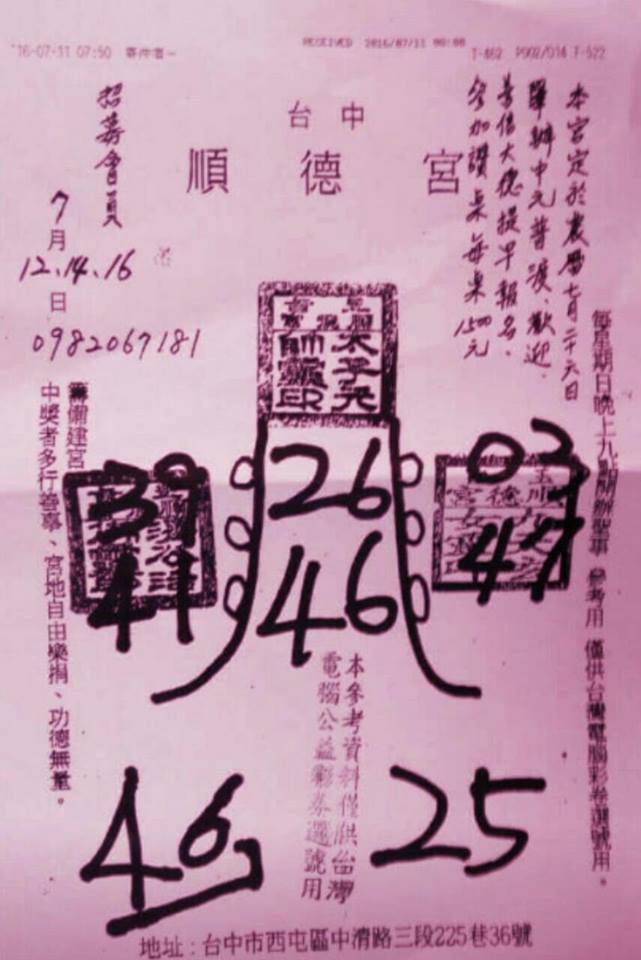 '16-07-31 07:50 寄件者-
RECEIVED 2016/07/31 00:00
T-462 P002/014 F-522
台中
順德宮
本宮定於農曆七月二十六日
舉辦中元普渡、歡迎
善信大德提早報名、
參加讚桌每桌1500元
招募會員
7月
12.14.16
日
0982067181
每星期日晚上九點開辦聖事 參考用 僅供台灣電腦彩券選號用。
籌備建宮
中獎者多行善事、宮地自由樂捐、功德無量。
太子元
帥靈印
03
47
26
46
39
41
本參考資料僅供台灣
電腦公益彩券選號用
46
25
地址:台中市西屯區中清路三段225巷36號